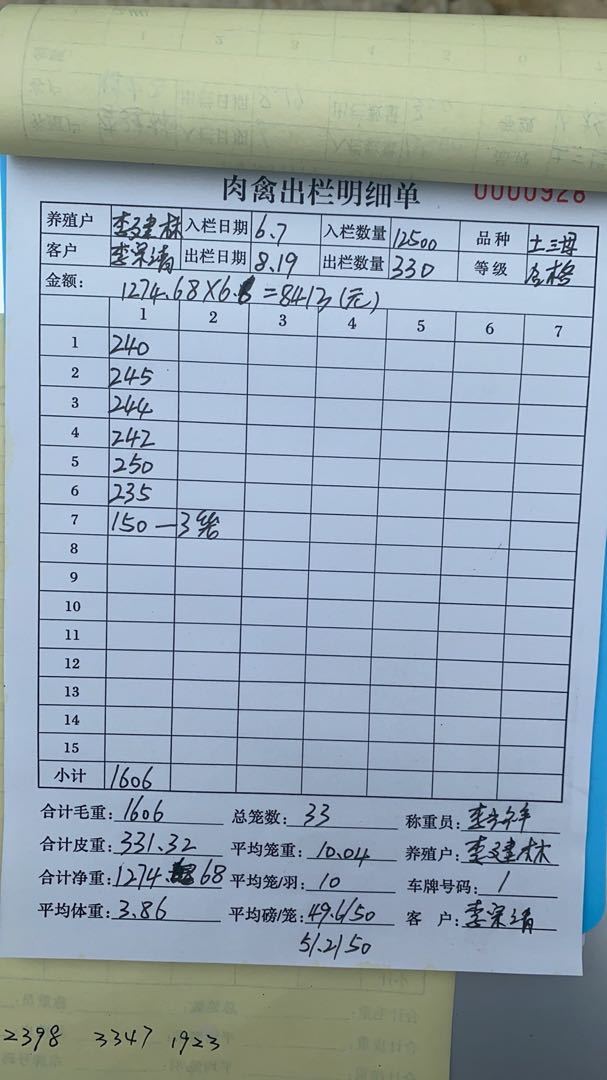 肉禽出栏明细单 0000926
养殖户 李建林 入栏日期 6.7 入栏数量 12500 品种 土三母
客户 李荣清 出栏日期 8.19 出栏数量 330 等级 合格
金额: 1274.68×6.6=8413(元)
1 2 3 4 5 6 7
1 240
2 245
3 244
4 242
5 250
6 235
7 150—3笼
8
9
10
11
12
13
14
15
小计 1606
合计毛重: 1606 总笼数: 33 称重员:
合计皮重: 331.32 平均笼重: 10.04 养殖户: 李建林
合计净重: 1274.68 平均笼/羽: 10 车牌号码: 1
平均体重: 3.86 平均磅/笼: 49.6/50 客 户: 李荣清
51.2/50
2398 3347 1923